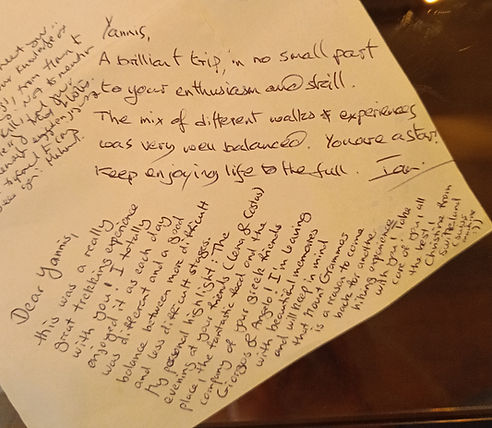 Yannis,
A brilliant trip, in no small part
to your enthusiasm and skill.
The mix of different walks & experiences
was very well balanced. You are a star.
Keep enjoying life to the full. Ian.
Dear Yannis,
this was a really
great trekking experience
with you! I totally
enjoyed it as each day
was different and a good
balance between more difficult
and less difficult stages.
My personal highlight: The
evening at your friends (Lena & Costas)
place, the fantastic food and the
company of your greek friends
Giorgos & Angelo! I'm leaving
with beautiful memories
and will keep in mind
that Mount Grammos
is a reason to come
back for another
hiking experience
with you! Take
care of you, all
the best!
Christine from
Switzerland